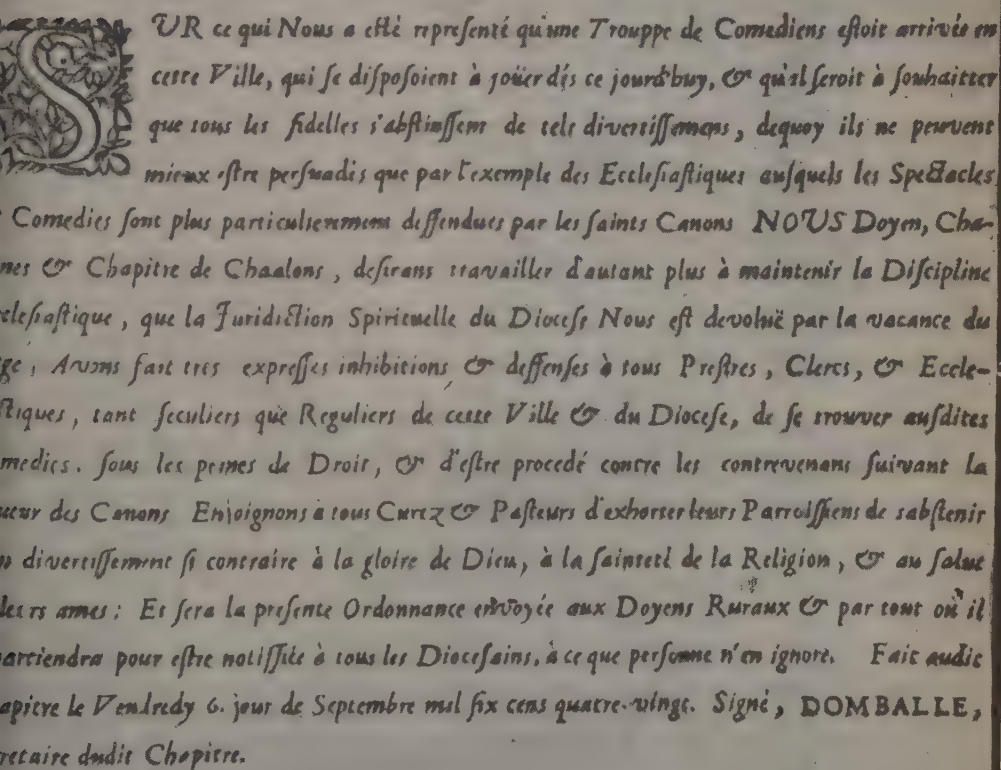 SUR ce qui Nous a esté representé qu'une Trouppe de Comediens estoit arrivée en
cette Ville, qui se disposoient à joüer dés ce jourd'huy, & qu'il seroit à souhaitter
que tous les fidelles s'abstinssent de tels divertissemens, dequoy ils ne peuvent
mieux estre persuadés que par l'exemple des Ecclesiastiques ausquels les Spectacles
Comedies sont plus particulierement deffendues par les saints Canons NOUS Doyen, Cha-
nes & Chapitre de Chaalons, desirans travailler d'autant plus à maintenir la Discipline
clesiastique, que la Juridiction Spirituelle du Diocese Nous est devoluë par la vacance du
ge, Avons fait tres expresses inhibitions & deffenses à tous Prestres, Clercs, & Eccle-
stiques, tant seculiers que Reguliers de cette Ville & du Diocese, de se trouver ausdites
medies. sous les peines de Droit, & d'estre procedé contre les contrevenans suivant la
ueur des Canons Enjoignons à tous Curez & Pasteurs d'exhorter leurs Parroissiens de s'abstenir
n divertissement si contraire à la gloire de Dieu, à la sainteté de la Religion, & au salut
leurs ames: Et sera la presente Ordonnance envoyée aux Doyens Ruraux & par tout où il
partiendra pour estre notiffiée à tous les Diocesains, à ce que personne n'en ignore. Fait audit
apitre le Vendredy 6. jour de Septembre mil six cens quatre-vingt. Signé, DOMBALLE,
retaire dudit Chapitre.